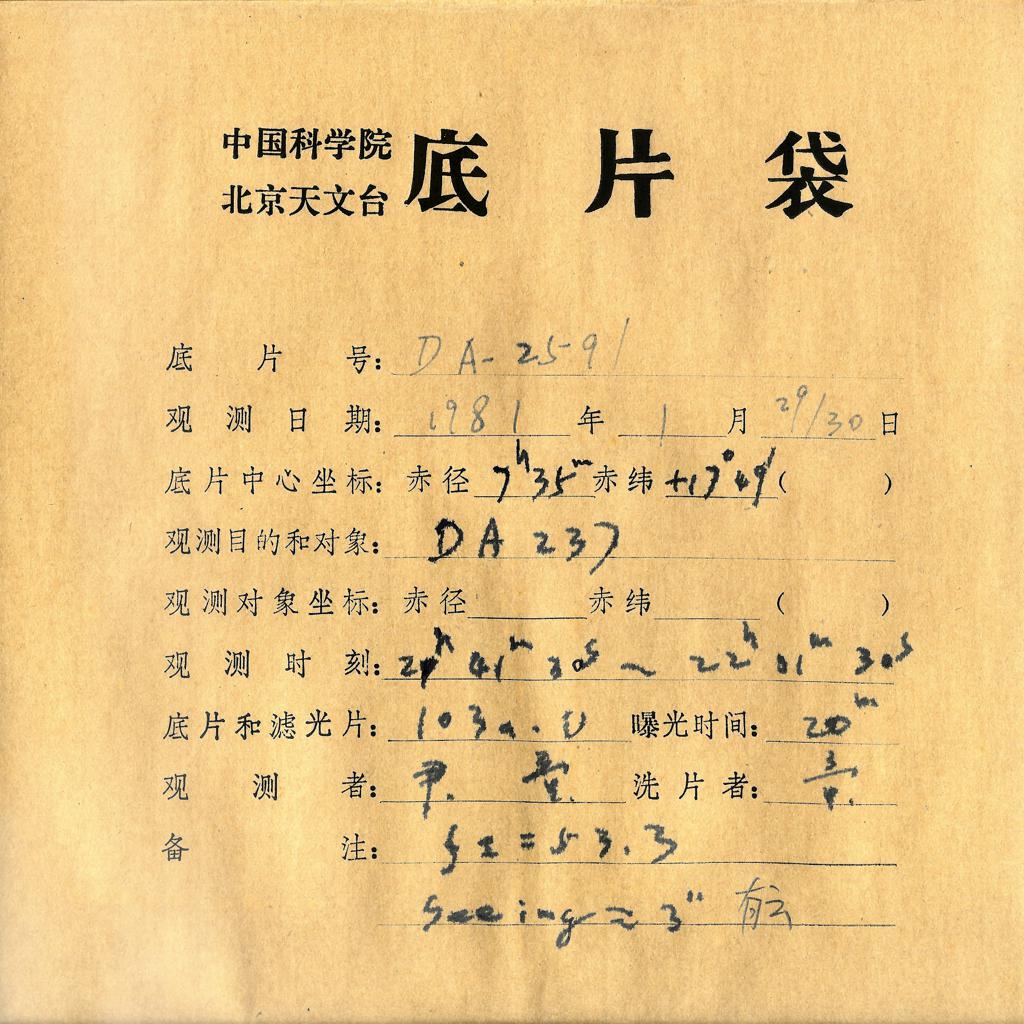 中国科学院
北京天文台
底片袋
底片号: DA-2591
观测日期: 1981年1月29/30日
底片中心坐标: 赤径 7h35m 赤纬 +17°49′( )
观测目的和对象: DA 237
观测对象坐标: 赤径 赤纬 ( )
观测时刻: 21h 41m 30s ~ 22h 01m 30s
底片和滤光片: 103a.O 曝光时间: 20m
观测者: 洗片者:
备注: = 53.3
Seeing ≈ 3" 有云